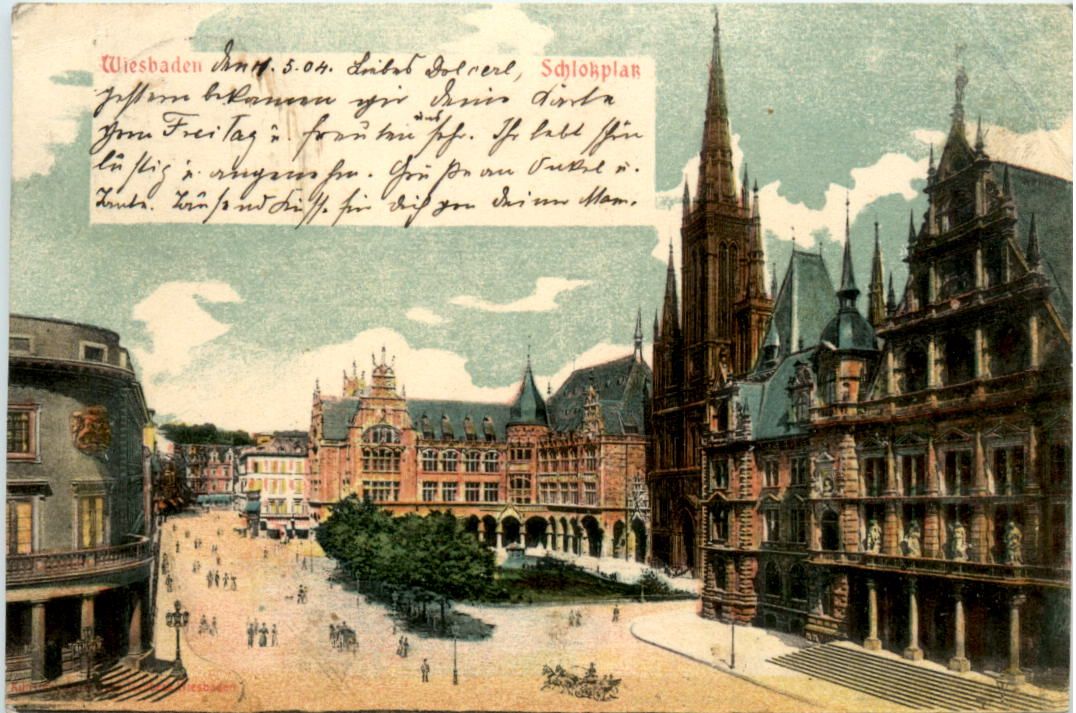 Wiesbaden den 11. 5. 04. Liebes Dolcerl, Schloßplatz
gestern bekamen wir deine Karte
vom Freitag u. freuten uns sehr. Ihr lebt schön
lustig u. angenehm. Grüße an Onkel u.
Tante. Tausend Küsse für dich von deiner Mam.
Wiesbaden